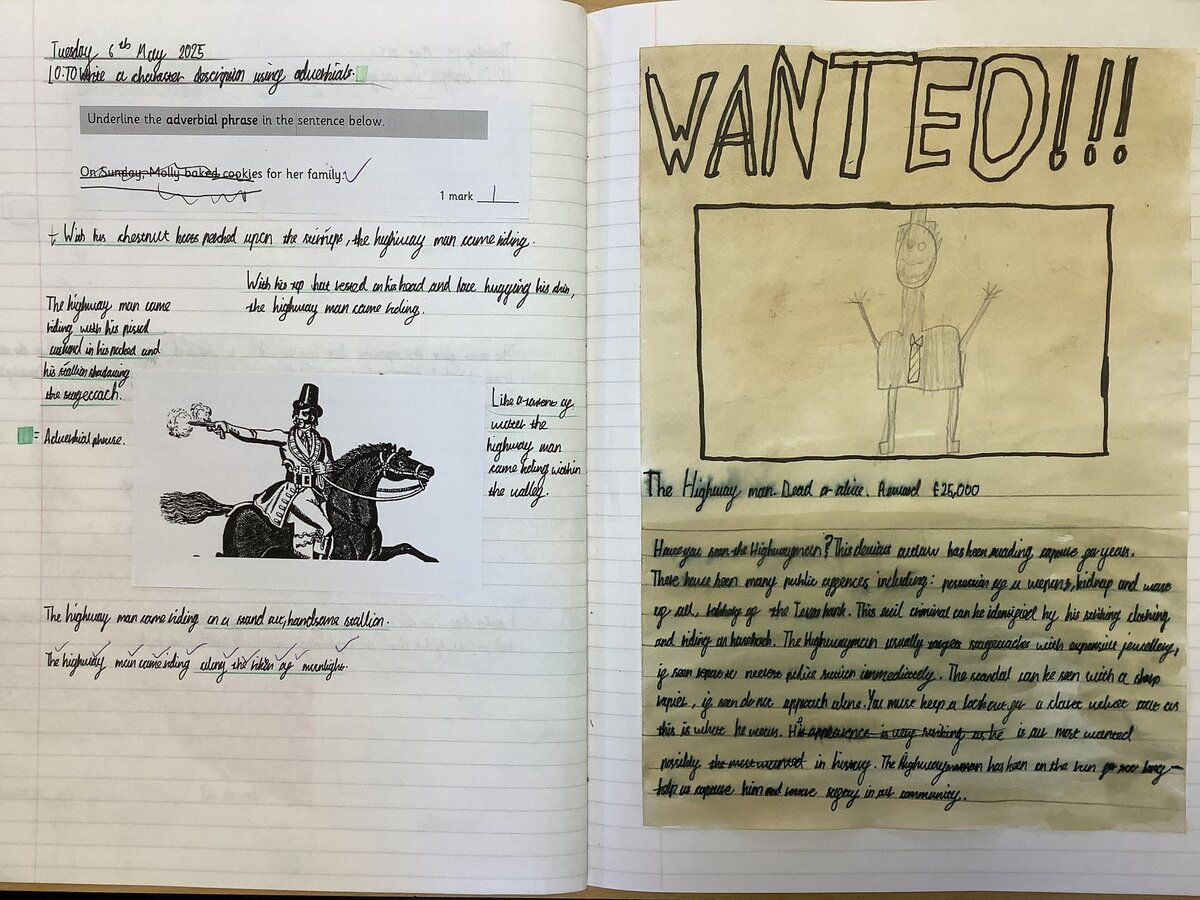 Tuesday 6th May 2025
LO: TO Write a character description using adverbials.
Underline the adverbial phrase in the sentence below.
On Sunday, Molly baked cookies for her family.
1 mark 1
With his chestnut perched upon the stirrups, the highway man came riding.
With his top hat rested on his head and lace hugging his chin,
the highway man came riding.
The highway man came
riding with his pistol
in his pocket and
his stallion shadowing
the stagecoach.
= Adverbial phrase.
Like a of
water the
highway man
came riding within
the valley.
The highway man came riding on a stand out, handsome stallion.
The highway man came riding along the of moonlight.
WANTED!!!
The Highway man. Dead or alive. Reward £25,000
Have you seen the Highwayman? This devious outlaw has been evading capture for years.
There have been many public offences including: possession of a weapons, kidnap and worst
of all, robbery of the bank. This evil criminal can be identified by his striking clothing
and riding on horseback. The Highwayman usually targets stagecoaches with expensive jewellery,
if seen report to nearest police station immediately. The scandal can be seen with a sharp
rapier, if seen do not approach alone. You must keep a lookout for a claret velvet coat as
this is what he wears. His appearence is very striking as he is our most wanted
possibly the most wanted in history. The Highwayman has been on the run for too long -
help us capture him and safety in our community.